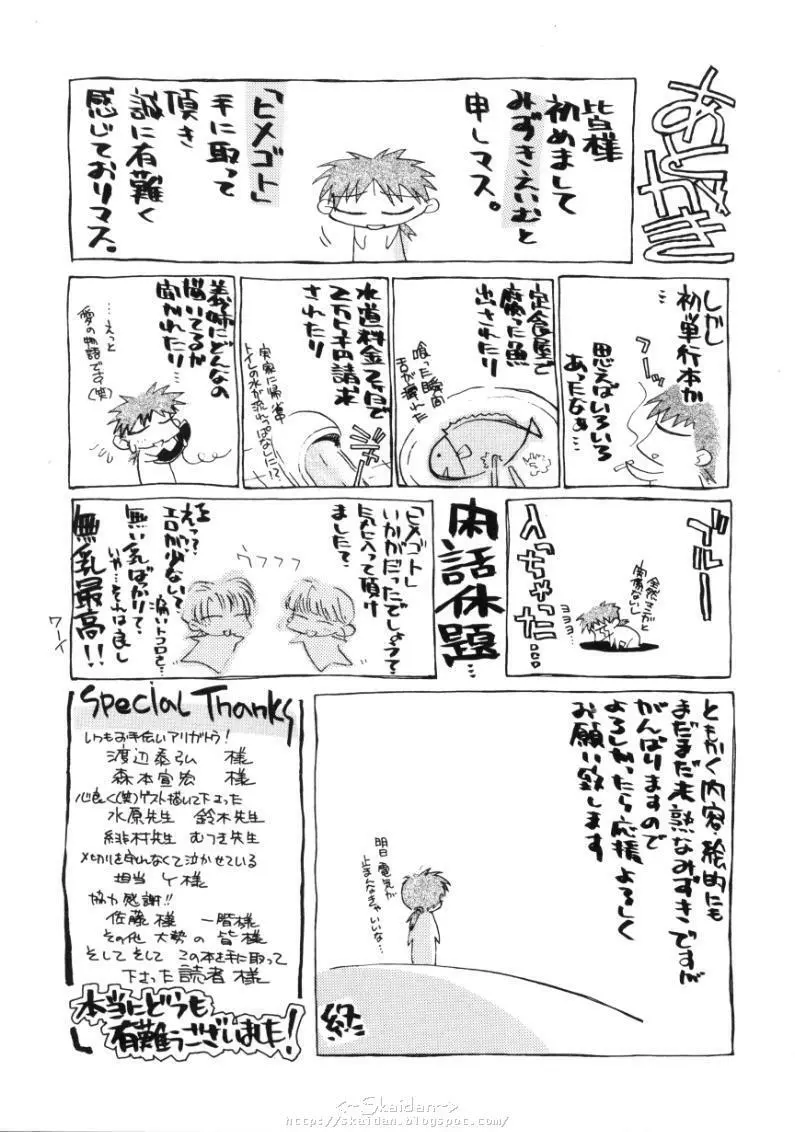 あとがき
皆様
初めまして
みずきえいむと
申しマス。
「ヒメゴト」
手に取って
頂き
誠に有難く
感じておりマス。
しかし
初単行本か
…
思えばいろいろ
あったなぁ…
フーッ
定食屋で
腐った魚
出されたり
喰った瞬間
舌が痺れた
水道料金2ヶ月で
2万5千円請求
されたり
実家に帰省中
トイレの水が流れっぱなしに!?
義姉にどんなの
描いてるか
聞かれたり…
…えっと
愛の物語です(笑)
ブルーー
入っちゃった…
全然マンガと
関係ないし
ヨヨヨ…
閑話休題…
「ヒメゴト」
いかがだったでしょうか?
気に入って頂け
ましたて?
ウフフフ
えっ?
エロが少ない?
痛いトコロを…
無い乳ばっかりで?
いや…それは良し
無乳最高!!
ワーイ
ともかく内容・絵的にも
まだまだ未熟なみずきですが
がんばりますので
よろしかったら応援よろしく
お願い致します
明日電気が
止まんなきゃいいな…
終
Special Thanks
いつもお手伝いアリガトう!
渡辺泰弘 様
森本宣宏 様
心良く(笑)ゲスト描いて下さった
水原先生 鈴木先生
緋村先生 むつき先生
〆切りを守れなくて泣かせている
担当 Y様
協力感謝!!
佐藤様 一階様
その他 大勢の皆様
そして そして この本を手に取って
下さった読者様
本当にどうも
有難うございました!
<~Skaidan~>
http://skaidan.blogspot.com/